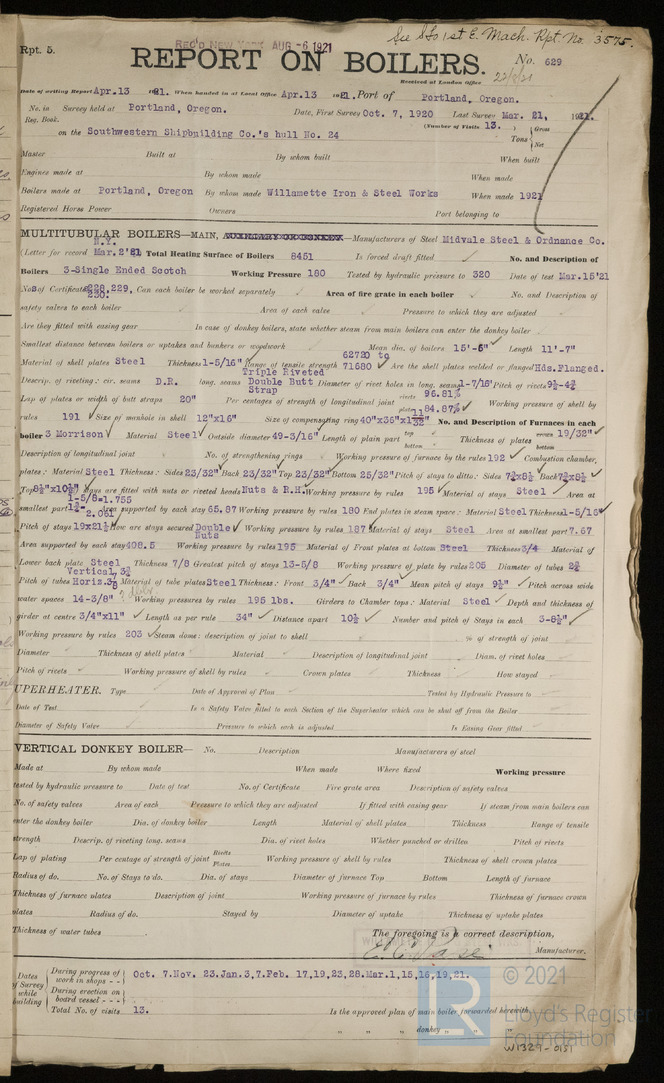 See S/o 1st E. Mach. Rpt. No. 3575.
Rpt. 5.
REC'D NEW YORK AUG -6 1921
REPORT ON BOILERS.
No. 629
Received at London Office
Date of writing Report Apr.13 1921. When handed in at Local Office Apr.13 1921. Port of Portland, Oregon.
No. in Survey held at Portland, Oregon. Date, First Survey Oct. 7, 1920 Last Survey Mar. 21, 1921.
Reg. Book. (Number of Visits 13. )
on the Southwestern Shipbuilding Co.'s hull No. 24 Tons { Gross Net
Master Built at By whom built When built
Engines made at By whom made When made
Boilers made at Portland, Oregon By whom made Willamette Iron & Steel Works When made 1921
Registered Horse Power Owners Port belonging to
MULTITUBULAR BOILERS—MAIN, —Manufacturers of Steel Midvale Steel & Ordnance Co.
N.Y.
(Letter for record Mar.2'21 Total Heating Surface of Boilers 8451 Is forced draft fitted ✓ No. and Description of
Boilers 3-Single Ended Scotch Working Pressure 180 Tested by hydraulic pressure to 320 Date of test Mar.15'21
No. of Certificate 228,229, 230. Can each boiler be worked separately ✓ Area of fire grate in each boiler ✓ No. and Description of
safety valves to each boiler Area of each valve Pressure to which they are adjusted
Are they fitted with easing gear In case of donkey boilers, state whether steam from main boilers can enter the donkey boiler
Smallest distance between boilers or uptakes and bunkers or woodwork Mean dia. of boilers 15'-6" ✓ Length 11'-7"
Material of shell plates Steel Thickness 1-5/16" Range of tensile strength 62720 to 71680 ✓ Are the shell plates welded or flanged Hds.Flanged.
Descrip. of riveting : cir. seams D.R. long. seams Triple Riveted Double Butt Strap Diameter of rivet holes in long. seams 1-7/16" Pitch of rivets 9½-4¾
Lap of plates or width of butt straps 20" Per centages of strength of longitudinal joint rivets 96.81% plate 84.87% ✓ Working pressure of shell by
rules 191 ✓ Size of manhole in shell 12"x16" Size of compensating ring 40"x36"x1 11/32" ✓ No. and Description of Furnaces in each
boiler 3 Morrison ✓ Material Steel ✓ Outside diameter 49-3/16" Length of plain part top bottom Thickness of plates crown bottom 19/32" ✓
Description of longitudinal joint No. of strengthening rings Working pressure of furnace by the rules 192 ✓ Combustion chamber,
plates : Material Steel Thickness : Sides 23/32" Back 23/32" Top 23/32" Bottom 25/32" Pitch of stays to ditto : Sides 7¾x8½ Back 7¾x8½ ✓
Top 8½"x10½" If stays are fitted with nuts or riveted heads Nuts & R.H. Working pressure by rules 195 ✓ Material of stays Steel ✓ Area at
smallest part 1-5/8-1.755 1¾-2.08 Area supported by each stay 65.87 Working pressure by rules 180 End plates in steam space : Material Steel Thickness 1-5/16 ✓
Pitch of stays 19x21½ How are stays secured Double Nuts ✓ Working pressure by rules 187 ✓ Material of stays Steel Area at smallest part 7.67
Area supported by each stay 408.5 Working pressure by rules 195 Material of Front plates at bottom Steel Thickness 3/4 Material of
Lower back plate Steel Thickness 7/8 Greatest pitch of stays 13-5/8 Working pressure of plate by rules 205 Diameter of tubes 2½
Pitch of tubes Vertical, 3¾ Horiz. 3⅞ Material of tube plates Steel Thickness : Front 3/4" ✓ Back 3/4" ✓ Mean pitch of stays 9½" ✓ Pitch across wide
water spaces 14-3/8" Working pressures by rules 195 lbs. Girders to Chamber tops : Material Steel ✓ Depth and thickness of
girder at centre 3/4"x11" ✓ Length as per rule 34" ✓ Distance apart 10½ ✓ Number and pitch of Stays in each 3-8½" ✓
Working pressure by rules 203 ✓ Steam dome : description of joint to shell % of strength of joint
Diameter Thickness of shell plates Material Description of longitudinal joint Diam. of rivet holes
Pitch of rivets Working pressure of shell by rules Crown plates Thickness How stayed
UPERHEATER. Type Date of Approval of Plan Tested by Hydraulic Pressure to
Date of Test Is a Safety Valve fitted to each Section of the Superheater which can be shut off from the Boiler
Diameter of Safety Valve Pressure to which each is adjusted Is Easing Gear fitted
VERTICAL DONKEY BOILER— No. Description Manufacturers of steel
Made at By whom made When made Where fixed Working pressure
tested by hydraulic pressure to Date of test No. of Certificate Fire grate area Description of safety valves
No. of safety valves Area of each Pressure to which they are adjusted If fitted with easing gear If steam from main boilers can
enter the donkey boiler Dia. of donkey boiler Length Material of shell plates Thickness Range of tensile
strength Descrip. of riveting long. seams Dia. of rivet holes Whether punched or drilled Pitch of rivets
Lap of plating Per centage of strength of joint Rivets Plates Working pressure of shell by rules Thickness of shell crown plates
Radius of do. No. of Stays to do. Dia. of stays Diameter of furnace Top Bottom Length of furnace
Thickness of furnace plates Description of joint Working pressure of furnace by rules Thickness of furnace crown
plates Radius of do. Stayed by Diameter of uptake Thickness of uptake plates
Thickness of water tubes The foregoing is a correct description,
Manufacturer.
Dates of Survey while building { During progress of work in shops - - Oct. 7.Nov. 23.Jan.3,7.Feb. 17,19,23,28.Mar.1,15,16,19,21.
During erection on board vessel - - -
Total No. of visits 13. Is the approved plan of main boiler forwarded herewith
" " " donkey " " "
LR © 2021
Lloyd's Register
Foundation
W1329-0151